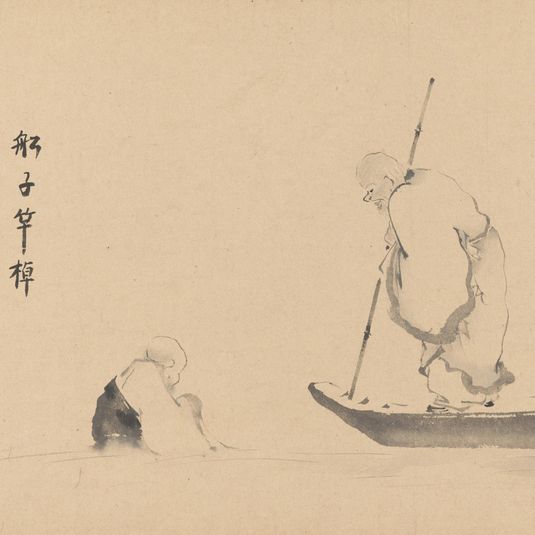 船子竿棹